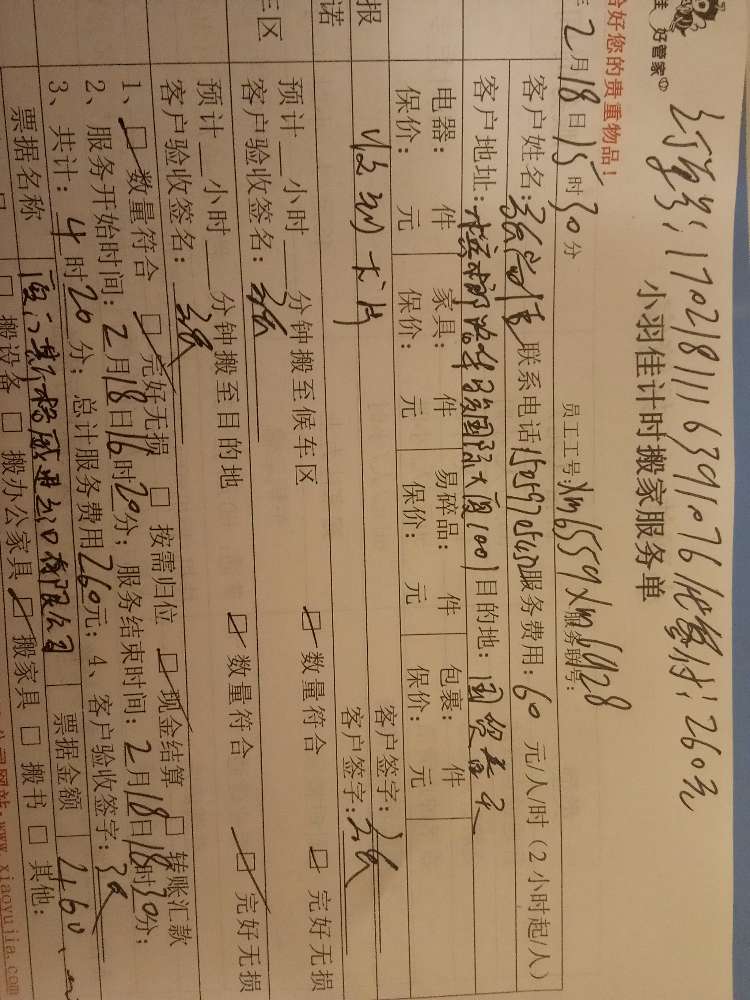 好管家
订单号：170218111639107б 优惠付：260元
小羽佳计时搬家服务单
好您的贵重物品！
2月18日15时30分
员工工号：xm6559 xm6928 服务联号：
客户姓名： 联系电话 服务费用：60元/人/时（2小时起/人）
客户地址： 国际大厦1001 目的地：国贸春天
电器： 件 家具： 件 易碎品： 件 包裹： 件
保价： 元 保价： 元 保价： 元 保价： 元
客户签字：
报
诺
客户签字：
车区
预计 小时 分钟搬至候车区 数量符合 完好无损
客户验收签名：
预计 小时 分钟搬至目的地 数量符合 完好无损
客户验收签名：
1、 数量符合 完好无损 按需归位 现金结算 转账汇款
2、服务开始时间：2月18日16时20分；服务结束时间：2月18日18时30分；
3、共计：4时20分；总计服务费用260元；4、客户验收签字：
票据名称 有限公司 票据金额 460
搬设备 搬办公家具 搬家具 搬书 其他：
www.xiaoyujia.com